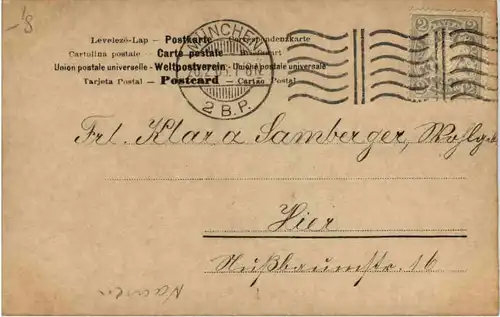 Levelezö-Lap – Postkarte – Correspondenzkarte
Cartolina postale – Carte postale –
Union postale universelle - Weltpostverein - Unione postale universale
Tarjeta Postal – Postcard – Cartão Postal
MÜNCHEN
2 B.P.
2 2
Frl. Klara Samberger,
Hier
Nußbaumstr. 16